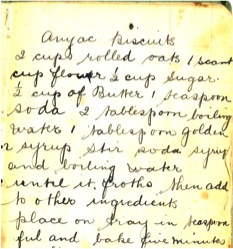 Anzac Biscuits
2 cups rolled oats 1 scant
cup flour ½ cup sugar
½ cup of Butter 1 teaspoon
soda 2 tablespoon boiling
water 1 tablespoon golden
syrup stir soda syrup
and boiling water
until it froths then add
to other ingredients
place on tray in teaspoon
ful and bake five minutes